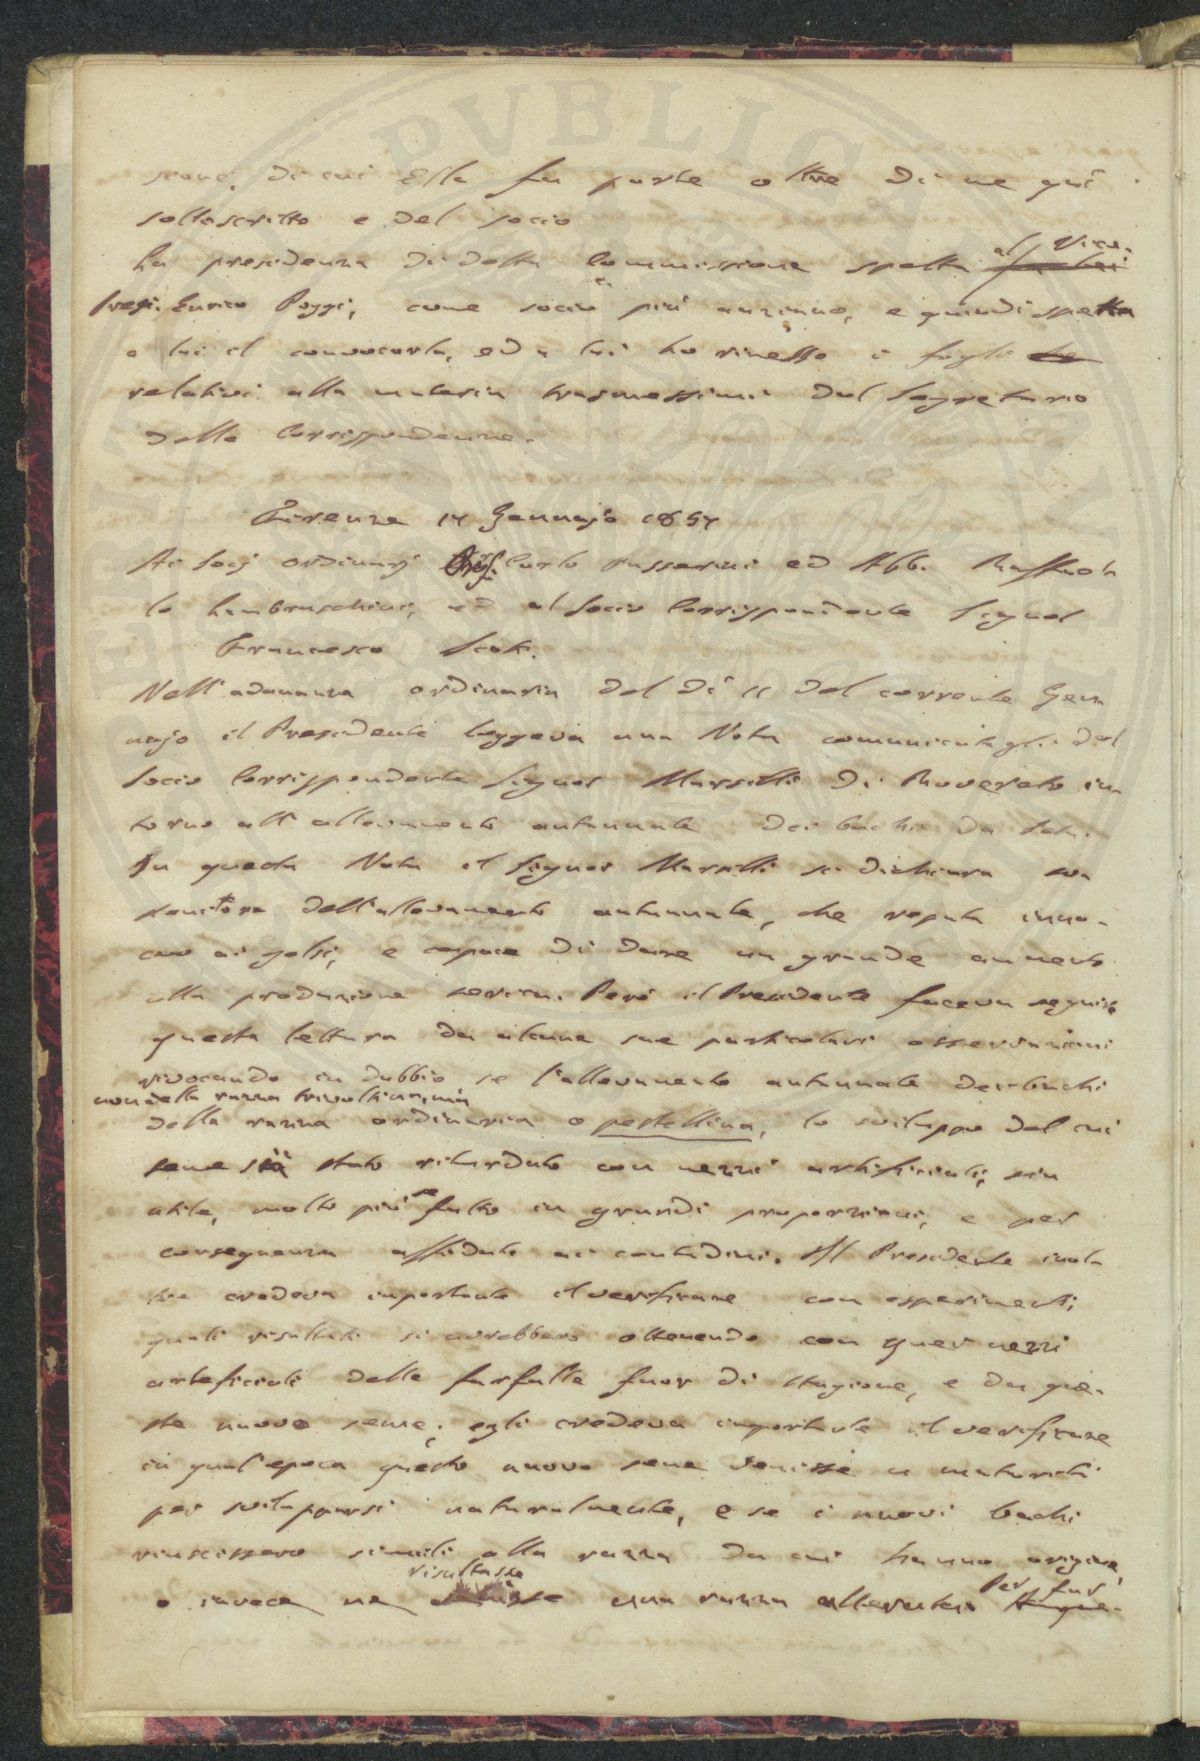 sione, di cui Ella fa parte oltre di me quì
sottoscritto e del socio
La presidenza di detta Commissione spetta al Vice-
Presi. Enrico Poggi, come socio più anziano, e quindi spetta
a lui il convocarla, ed a lui ho rimesso i fogli
relativi alla materia trasmessimi dal Segretario
delle Corrispondenze.
Firenze 14 Gennajo 1857
Ai Socj ordinarj Carlo Passerini ed Abb. Raffael-
lo Lambruschini, ed al Socio Corrispondente Signor
Francesco Scoti.
Nell'adunanza ordinaria del dì 11 del corrente Gen
najo il Presidente leggeva una Nota comunicatagli dal
Socio Corrispondente Signor Marsilli di Rovereto in-
torno all'allevamento autunnale dei bachi da seta.
In questa Nota il Signor Marsilli si dichiara so
stenitore dell'allevamento autunnale, che reputa inno-
cuo ai gelsi, e capace di dare un grande aumento
alla produzione serica. Però il Presidente faceva seguire
questa lettura da alcune sue particolari osservazioni
rivocando in dubbio se l'allevamento autunnale dei bachi
non della razza trivoltina, ma
della razza ordinaria o pestellina, lo sviluppo del cui
seme sia stato ritardato con mezzi artificiali, sia
utile, molto più se fatto in grandi proporzioni, e per
conseguenza affidato ai contadini. Il Presidente inol-
tre credeva importante il verificare con esperimenti,
quali resultati si avrebbero ottenendo con quei mezzi
arteficiali delle farfalle fuor di stagione, e da que-
ste nuovo seme; egli credeva importante il verificare
in qual'epoca questo nuovo seme venisse a maturità
per svilupparsi naturalmente, e se i nuovi bachi
riuscissero simili alla razza da cui hanno origine,
o invece ne risultasse una razza alterata. Per far